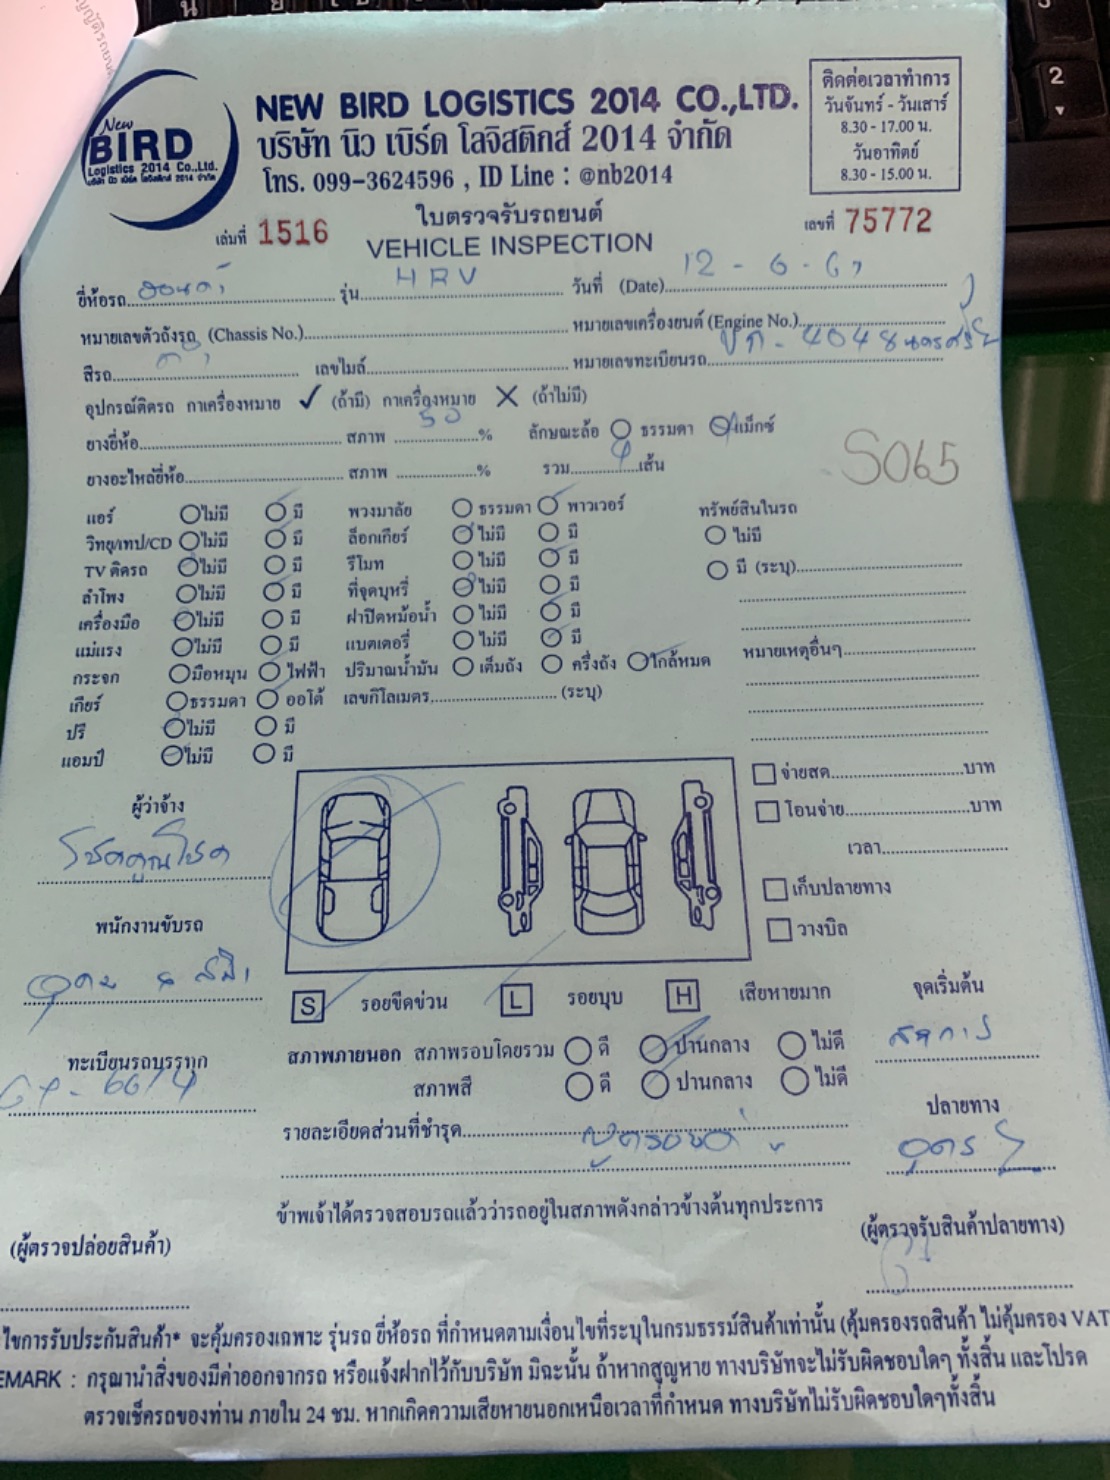 ญญัติรถยนต์
New
BIRD
Logistics 2014 Co.,Ltd.
บริษัท นิว เบิร์ด โลจิสติกส์ 2014 จำกัด
NEW BIRD LOGISTICS 2014 CO.,LTD.
บริษัท นิว เบิร์ด โลจิสติกส์ 2014 จำกัด
โทร. 099-3624596 , ID Line : @nb2014
ติดต่อเวลาทำการ
วันจันทร์ - วันเสาร์
8.30 - 17.00 น.
วันอาทิตย์
8.30 - 15.00 น.
เล่มที่ 1516
ใบตรวจรับรถยนต์
VEHICLE INSPECTION
เลขที่ 75772
ยี่ห้อรถ ฮอนด้า รุ่น HRV วันที่ (Date) 12 - 6 - 67
หมายเลขตัวถังรถ (Chassis No.) หมายเลขเครื่องยนต์ (Engine No.)
สีรถ ดำ เลขไมล์ หมายเลขทะเบียนรถ 4048
อุปกรณ์ติดรถ กาเครื่องหมาย ✓ (ถ้ามี) กาเครื่องหมาย X (ถ้าไม่มี)
ยางยี่ห้อ สภาพ 50 % ลักษณะล้อ ธรรมดา แม็กซ์
ยางอะไหล่ยี่ห้อ สภาพ % รวม 4 เส้น
S065
แอร์ ไม่มี มี พวงมาลัย ธรรมดา พาวเวอร์ ทรัพย์สินในรถ
วิทยุ/เทป/CD ไม่มี มี ล็อกเกียร์ ไม่มี มี ไม่มี
TV ติดรถ ไม่มี มี รีโมท ไม่มี มี มี (ระบุ)
ลำโพง ไม่มี มี ที่จุดบุหรี่ ไม่มี มี
เครื่องมือ ไม่มี มี ฝาปิดหม้อน้ำ ไม่มี มี
แม่แรง ไม่มี มี แบตเตอรี่ ไม่มี มี หมายเหตุอื่นๆ
กระจก มือหมุน ไฟฟ้า ปริมาณน้ำมัน เต็มถัง ครึ่งถัง ใกล้หมด
เกียร์ ธรรมดา ออโต้ เลขกิโลเมตร (ระบุ)
ปรี ไม่มี มี
แอมป์ ไม่มี มี
จ่ายสด บาท
โอนจ่าย บาท
เวลา
เก็บปลายทาง
วางบิล
ผู้ว่าจ้าง
โชคคูณโชค
พนักงานขับรถ
ทะเบียนรถบรรทุก
S รอยขีดข่วน L รอยบุบ H เสียหายมาก
สภาพภายนอก สภาพรอบโดยรวม ดี ปานกลาง ไม่ดี
สภาพสี ดี ปานกลาง ไม่ดี
รายละเอียดส่วนที่ชำรุด
จุดเริ่มต้น
ปลายทาง
อุดร
ข้าพเจ้าได้ตรวจสอบรถแล้วว่ารถอยู่ในสภาพดังกล่าวข้างต้นทุกประการ
(ผู้ตรวจปล่อยสินค้า)
(ผู้ตรวจรับสินค้าปลายทาง)
ไขการรับประกันสินค้า* จะคุ้มครองเฉพาะ รุ่นรถ ยี่ห้อรถ ที่กำหนดตามเงื่อนไขที่ระบุในกรมธรรม์สินค้าเท่านั้น (คุ้มครองรถสินค้า ไม่คุ้มครอง VAT
EMARK : กรุณานำสิ่งของมีค่าออกจากรถ หรือแจ้งฝากไว้กับบริษัท มิฉะนั้น ถ้าหากสูญหาย ทางบริษัทจะไม่รับผิดชอบใดๆ ทั้งสิ้น และโปรด
ตรวจเช็ครถของท่าน ภายใน 24 ชม. หากเกิดความเสียหายนอกเหนือเวลาที่กำหนด ทางบริษัทไม่รับผิดชอบใดๆทั้งสิ้น